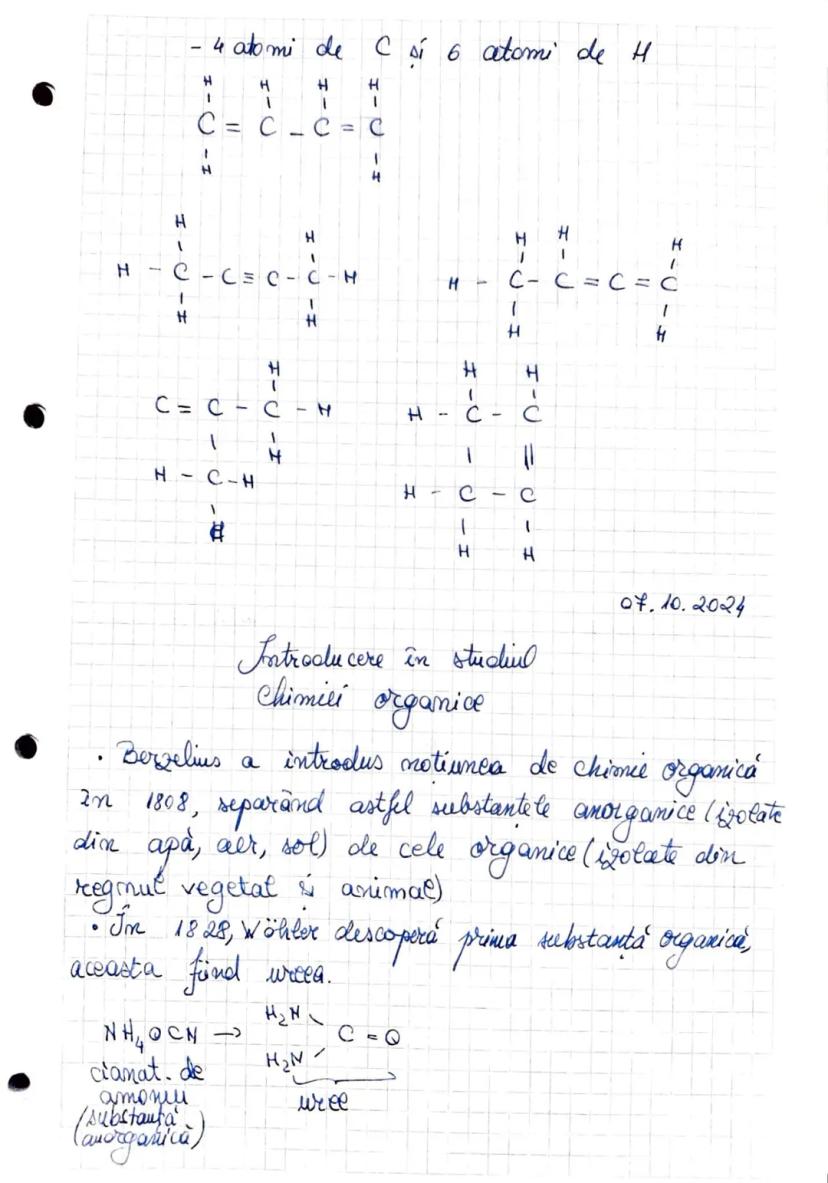 - 4 atomi de C și 6 atomi de H
H H H H
C = C - C = C
H H
H H
H - C - C ≡ C - C - H
H H
H H H
H - C - C = C = C
H H
H
C = C - C - H
H
H - C - H
H H
H - C - C
H - C - C
H H
07.10.2024
Introducere în studiul
Chimiei organice
· Berzelius a introdus noțiunea de chimie organică
în 1808, separând astfel substanțele anorganice (izolate
din apă, aer, sol) de cele organice (izolate din
regnul vegetal și animal)
· În 1828, Wöhler descoperă prima substanță organică,
aceasta fiind ureea.
NH₄OCN → H₂N C = O
H₂N
cianat de
amoniu
(substanță
anorganică)
uree